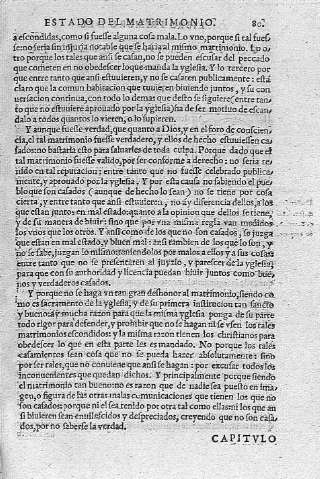 ESTADO DEL MATRIMONIO. 80.
a escondidas, como si fuesse alguna cosa mala. Lo vno, porque si tal fues
se: no seria sin injuria notable que se haria al mismo matrimonio. Lo o-
tro porque los tales que ansi se casan, no se pueden escusar del peccado
que cometen en no obedescer lo que manda la yglesia. Y lo tercero por
que entre tanto que ansi estuuieren, y no se casaren publicamente: està
claro que la comun habitacion que tuuieren biuiendo juntos, y su con
uersacion continua, con todo lo demas que desto se siguiere, entre tan-
to que no estuuiere aprouado por la yglesia, ha de ser motiuo de escan-
dalo a todos quantos lo vieren, o lo supieren.
Y aunque fuesse verdad, que quanto a Dios, y en el foro de conscien-
cia, el tal matrimonio fuesse verdadero, y ellos de hecho estuuiessen ca-
sados: no bastaria esto para saluarles de toda culpa. Porque dado que el
tal matrimonio fuesse valido, por ser conforme a derecho: no seria te-
nido en tal reputacion: entre tanto que no fuesse celebrado publica-
mente, y aprouado por la yglesia. Y por esta causa no sabiendo el pue-
blo que son casados (aunque de hecho lo sean) no se tiene por cosa
cierta, y entre tanto que ansi estuuieren, no ay diferencia dellos, a los
que estan juntos en mal estado, quanto a la opinion que dellos se tiene,
y de su manera de biuir; sino que por vna misma regla van medidos
los vnos que los otros. Y ansi como de los que no son casados, se juzga
que estan en mal estado, y biuen mal: ansi tambien de los que lo son, y
no se sabe, juzgan lo mismo, teniendolos por malos a ellos y a sus cosas
entre tanto que no se presentaren al juyzio, y parescer de la yglesia
para que con su authoridad y licencia puedan biuir juntos como bue-
nos y verdaderos casados.
Y porque no se haga vn tan gran deshonor al matrimonio, siendo co
mo es sacramento de la yglesia, y de su primera institucion tan sancto
y bueno: ay mucha razon para que la misma yglesia ponga de su parte
todo rigor para defender, y prohibir que no se hagan ni se vsen los tales
matrimonios escondidos: y la misma razon tienen los christianos para
obedescer lo que en esta parte les es mandado. No porque los tales
casamientos sean cosa que no se pueda hazer absolutamente: sino
por ser tales, que no conuiene que ansi se hagan: por escusar todos los
inconuenientes que quedan dichos. Y principalmente porque siendo
el matrimonio tan bueno: no es razon que de nadie sea puesto en ima-
gen, o figura de las otras malas comunicaciones que tienen los que no
son casados: porque ni el sea tenido por otra tal como ellas: ni los que an
si biuieren sean enuilescidos y despreciados, creyendo que no son casa-
dos, por no saberse la verdad.
CAPITVLO